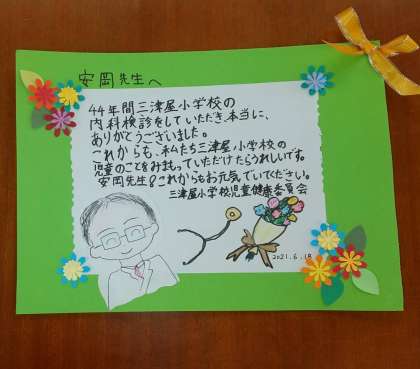 安岡先生へ
44年間三津屋小学校の
内科検診をしていただき本当に、
ありがとうございました。
これからも、私たち三津屋小学校の
児童のことをみまもっていただけたらうれしいです。
安岡先生もこれからもお元気でいてください。
三津屋小学校児童健康委員会
2021.6.18